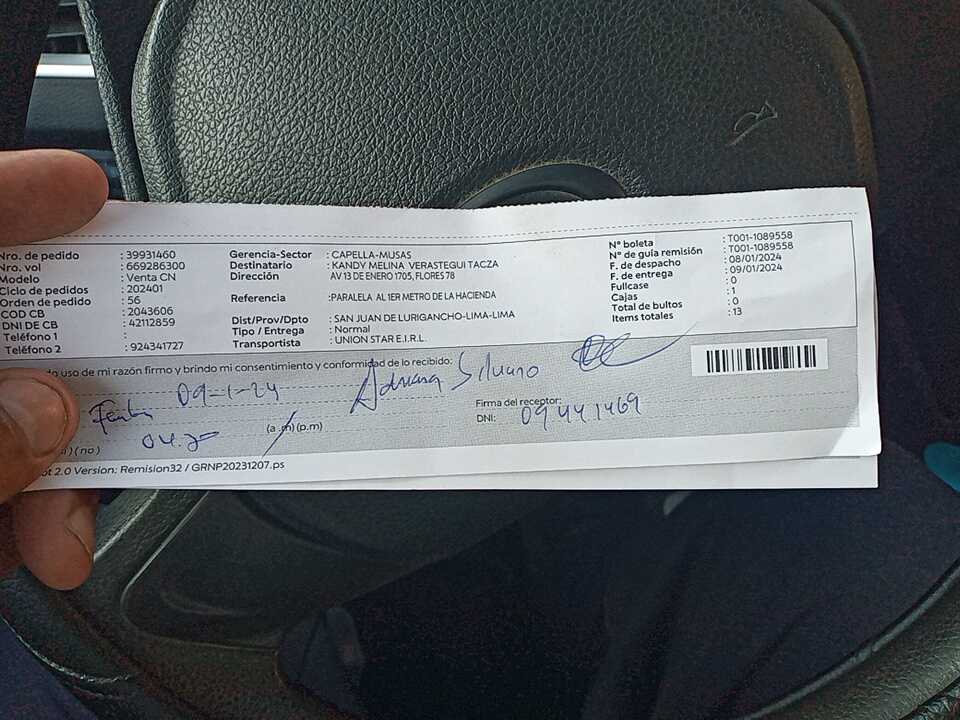 Nro. de pedido : 39931460
Nro. vol : 669286300
Modelo : Venta CN
Ciclo de pedidos : 202401
Orden de pedido : 56
COD CB : 2043606
DNI DE CB : 42112859
Teléfono 1 :
Teléfono 2 : 924341727
Gerencia-Sector : CAPELLA-MUSAS
Destinatario : KANDY MELINA VERASTEGUI TACZA
Dirección : AV 13 DE ENERO 1705, FLORES 78
Referencia : PARALELA AL 1ER METRO DE LA HACIENDA
Dist/Prov/Dpto : SAN JUAN DE LURIGANCHO-LIMA-LIMA
Tipo / Entrega : Normal
Transportista : UNION STAR E.I.R.L.
N° boleta : T001-1089558
N° de guia remisión : T001-1089558
F. de despacho : 08/01/2024
F. de entrega : 09/01/2024
Fullcase : 0
Cajas : 1
Total de bultos : 0
Items totales : 13
uso de mi razón firmo y brindo mi consentimiento y conformidad de lo recibido:
09-1-24
Adriana Silvano
(a .m) (p.m)
Firma del receptor:
DNI: 09441469
) (no)
2.0 Version: Remision32 / GRNP20231207.ps